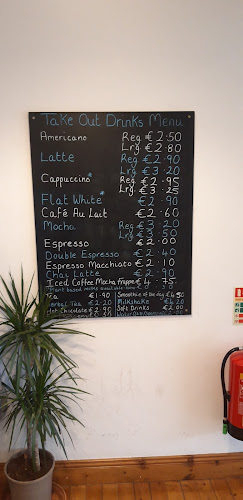 Take Out Drinks Menu
Americano Reg €2.50
Lrg €2.80
Latte Reg €2.90
Lrg €3.20
Cappuccino* Reg €2.95
Lrg €3.25
Flat White* €2.90
Café Au Lait €2.60
Mocha Reg €3.20
Lrg €3.50
Espresso €2.00
Double Espresso €2.40
Espresso Macchiato €2.10
Chai Latte €2.90
Iced Coffee Mocha Frappe €4.75
Tea €1.90 Smoothie of the day €4.50
Herbal Tea €2.20 Milkshake €4.20
Hot Chocolate €2.90 Soft Drinks €2.00